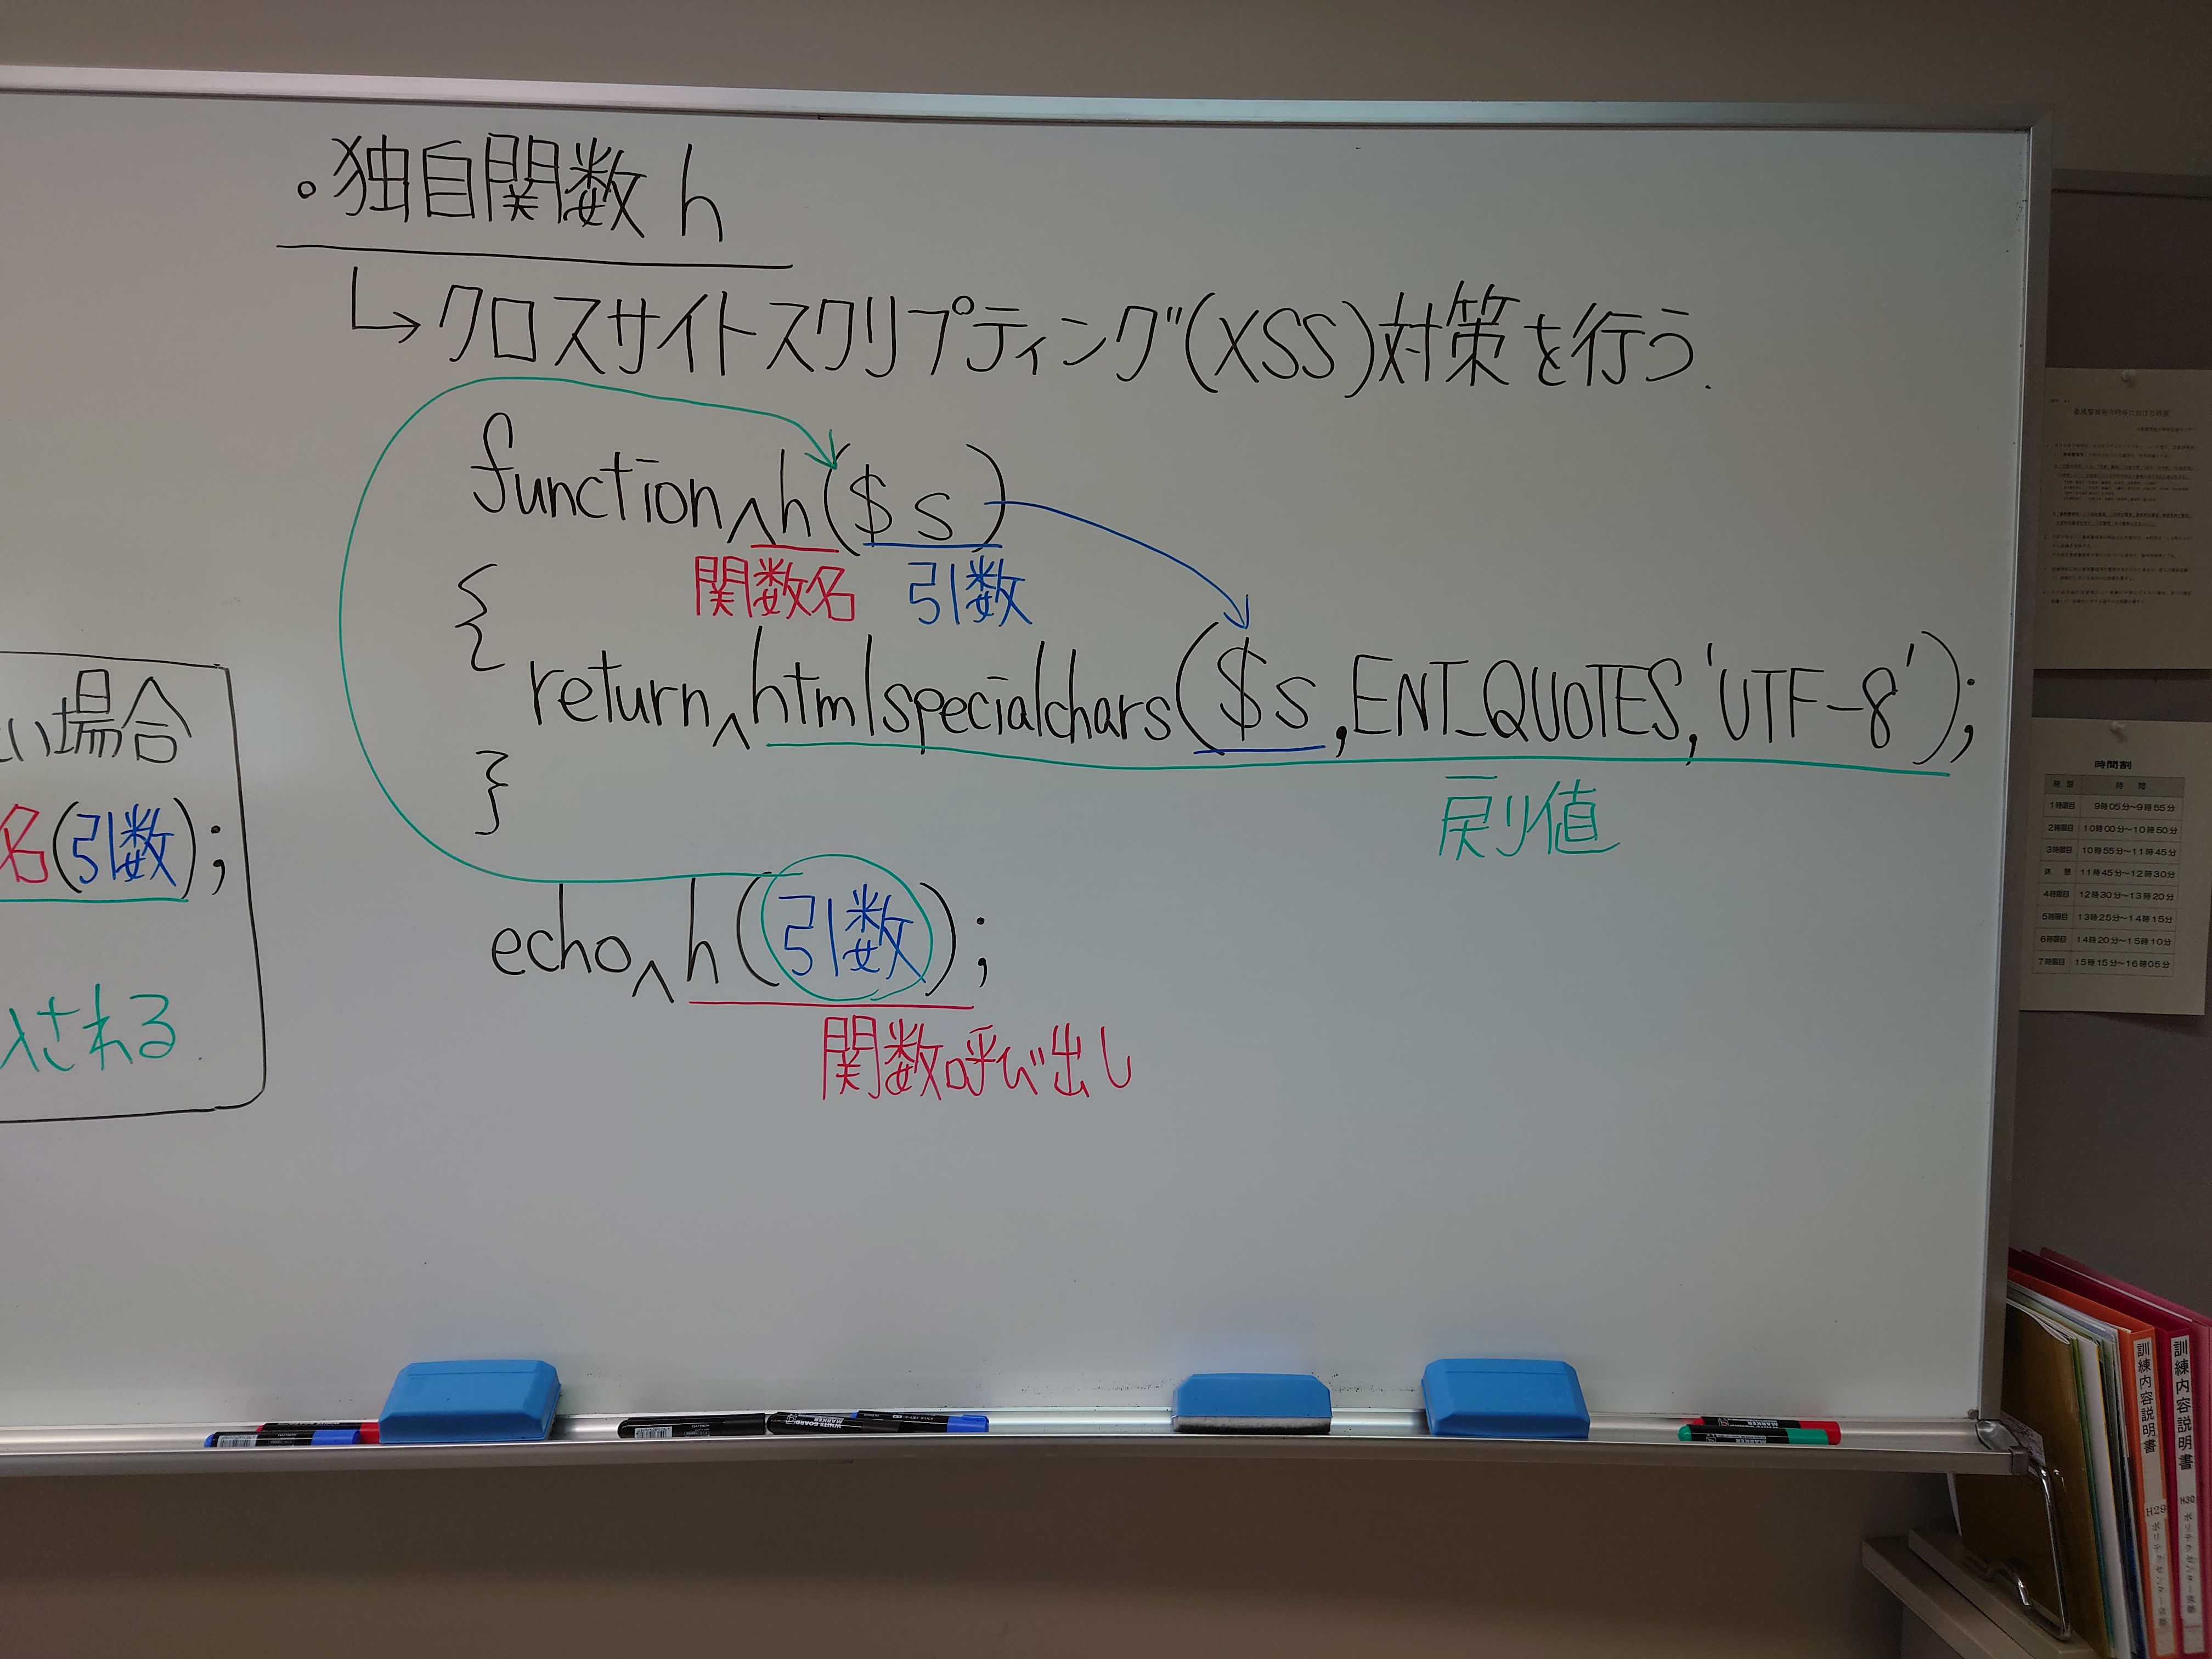 ・独自関数 h
↳クロスサイトスクリプティング(XSS)対策を行う.
function^h($s)
関数名 引数
{
return^htmlspecialchars($s,ENT_QUOTES,'UTF-8');
戻り値
}
echo^h(引数);
関数呼び出し
い場合
名(引数);
入される
時間割
時限 時間
1時限目 9時05分～9時55分
2時限目 10時00分～10時50分
3時限目 10時55分～11時45分
休憩 11時45分～12時30分
4時限目 12時30分～13時20分
5時限目 13時25分～14時15分
6時限目 14時20分～15時10分
7時限目 15時15分～16時05分
WHITE BOARD
MARKER
訓練内容説明書
H29
訓練内容説明書
H30